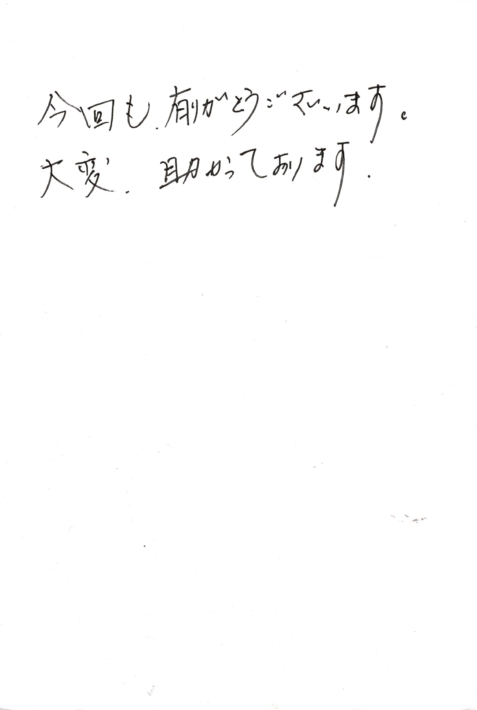 今回も、有りがとうございます。
大変、助かっております。